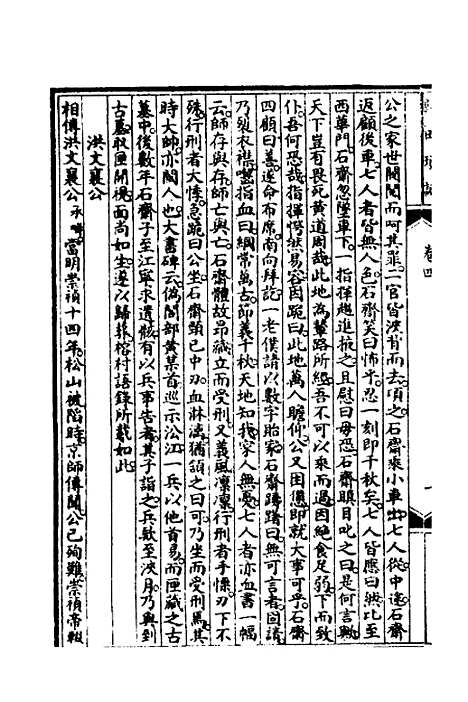 公之家世閥閱而呵其罪一官皆淚背而去頃之石齋乘小車出七人從中途石齋
返顧後車七人者皆無人色石齋笑曰怖乎忍一刻即千秋矣七人皆應曰然比至
西華門石齋忽墜車下一指揮趨進掖之且慰曰毋恐石齋瞋目叱之曰是何言歟
天下豈有畏死黃道周哉此地為輦路所經吾不可以乘而過因絕食足弱下而致
仆吾何恐哉指揮愕然易容因跪曰此地萬人瞻仰公又困憊即就大事可乎石齋
四顧曰善遂命布席南向拜訖一老僕請以數字貽家石齋躊躇曰無可言者固請
乃裂衣襟嚙指血曰綱常萬古節義千秋天地知我家人無憂七人者亦血書一幅
云師存與存師亡與亡石齋體故昂藏立而受刑又義風凜凜行刑者手慄刃下不
殊行刑者大悸急跪曰公坐石齋頸已中刃血淋漓猶頷之曰可乃坐而受刑焉其
時大師亦閩人也大書碑云偽閣部黃某首巡示淞江一兵以他首易而匣藏之古
墓中後數年石齋子至江寧求遺骸有以兵事告者其子詣之兵欷至淚月乃與到
古墓收匣開視面尚如生遂以歸葬榕村語錄所載如此
洪文襄公
相傳洪文襄公承疇當明崇禎十四年松山被陷時京師傳聞公已殉難崇禎帝輟
卷四
一